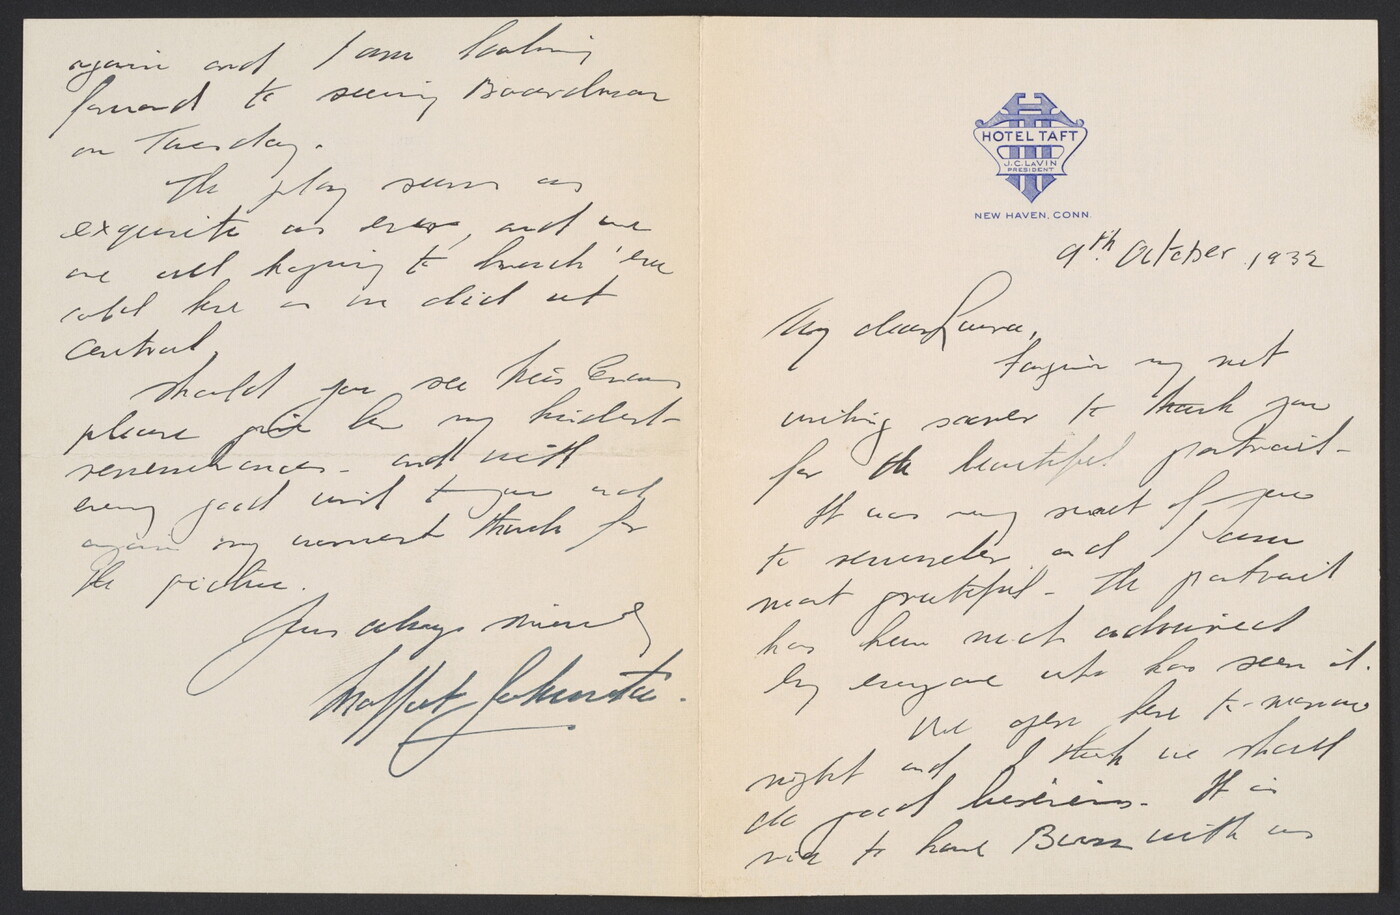 HOTEL TAFT
J.C. LAVIN
PRESIDENT
NEW HAVEN, CONN.
9th. October. 1932
My dear Laura,
Forgive my not
writing sooner to thank you
for the beautiful portrait-
It was very sweet of you
to remember and I am
most grateful - The portrait
has been most admired
by everyone who has seen it.
We open here to-morrow
night and I think we shall
do good business. It is
nice to have with us
again and I am looking
forward to seeing Boardman
on Tuesday.
The play seems as
exquisite as ever, and we
are all hoping to
here as we did at
Central.
Should you see Miss
please give her my kindest
remembrances - and with
every good wish to you and
again my warmest thanks for
the picture.
Yours always sincerely
Moffat Johnston.